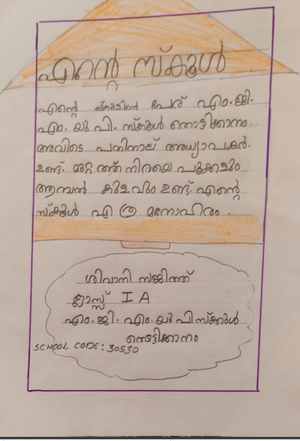 എന്റെ സ്കൂൾ
എന്റെ സ്കൂളിന്റെ പേര് എം.ജി.
എം. യു പി. സ്കൂൾ തൊട്ടിക്കാനം
അവിടെ പതിനാല് അധ്യാപകർ.
ഉണ്ട്. മുറ്റത്ത് നിറയെ പൂക്കളും
ആമ്പൽ കുളവും ഉണ്ട്. എന്റെ
സ്കൂൾ എത്ര മനോഹരം.
ശിവാനി സജിത്ത്
ക്ലാസ്സ് I A
എം. ജി. എം. യു പി സ്കൂൾ
തൊട്ടിക്കാനം
SCHOOL CODE: 30530